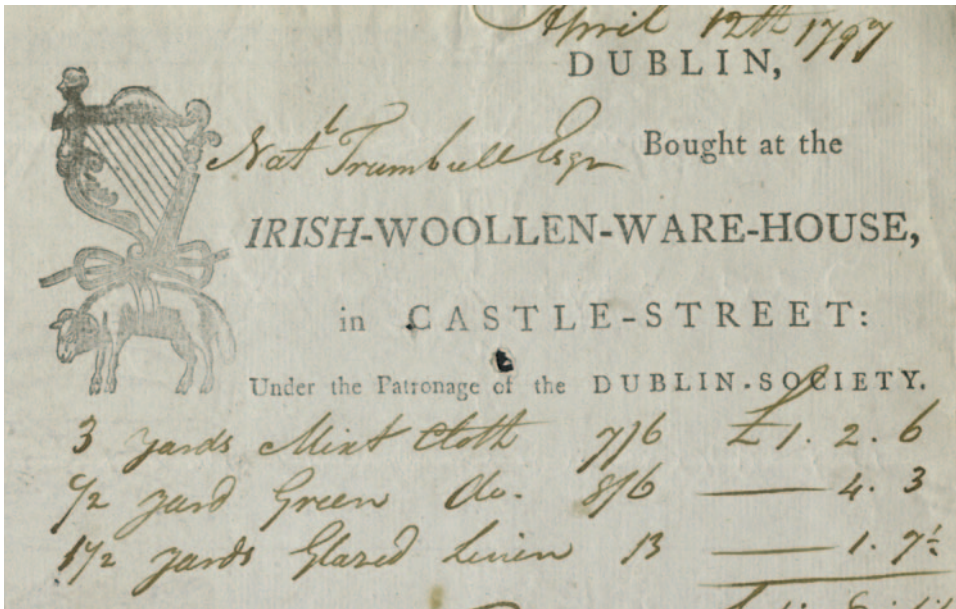 April 12th 1797
DUBLIN,
Natl Trumbull Esqr Bought at the
IRISH-WOOLLEN-WARE-HOUSE,
in CASTLE-STREET:
Under the Patronage of the DUBLIN-SOCIETY.
3 yards Mixt Cloth 7/6 £1. 2. 6
1/2 yard Green do. 8/6 — 4. 3
1 1/2 yards Glazed Linen 13 — 1. 7½